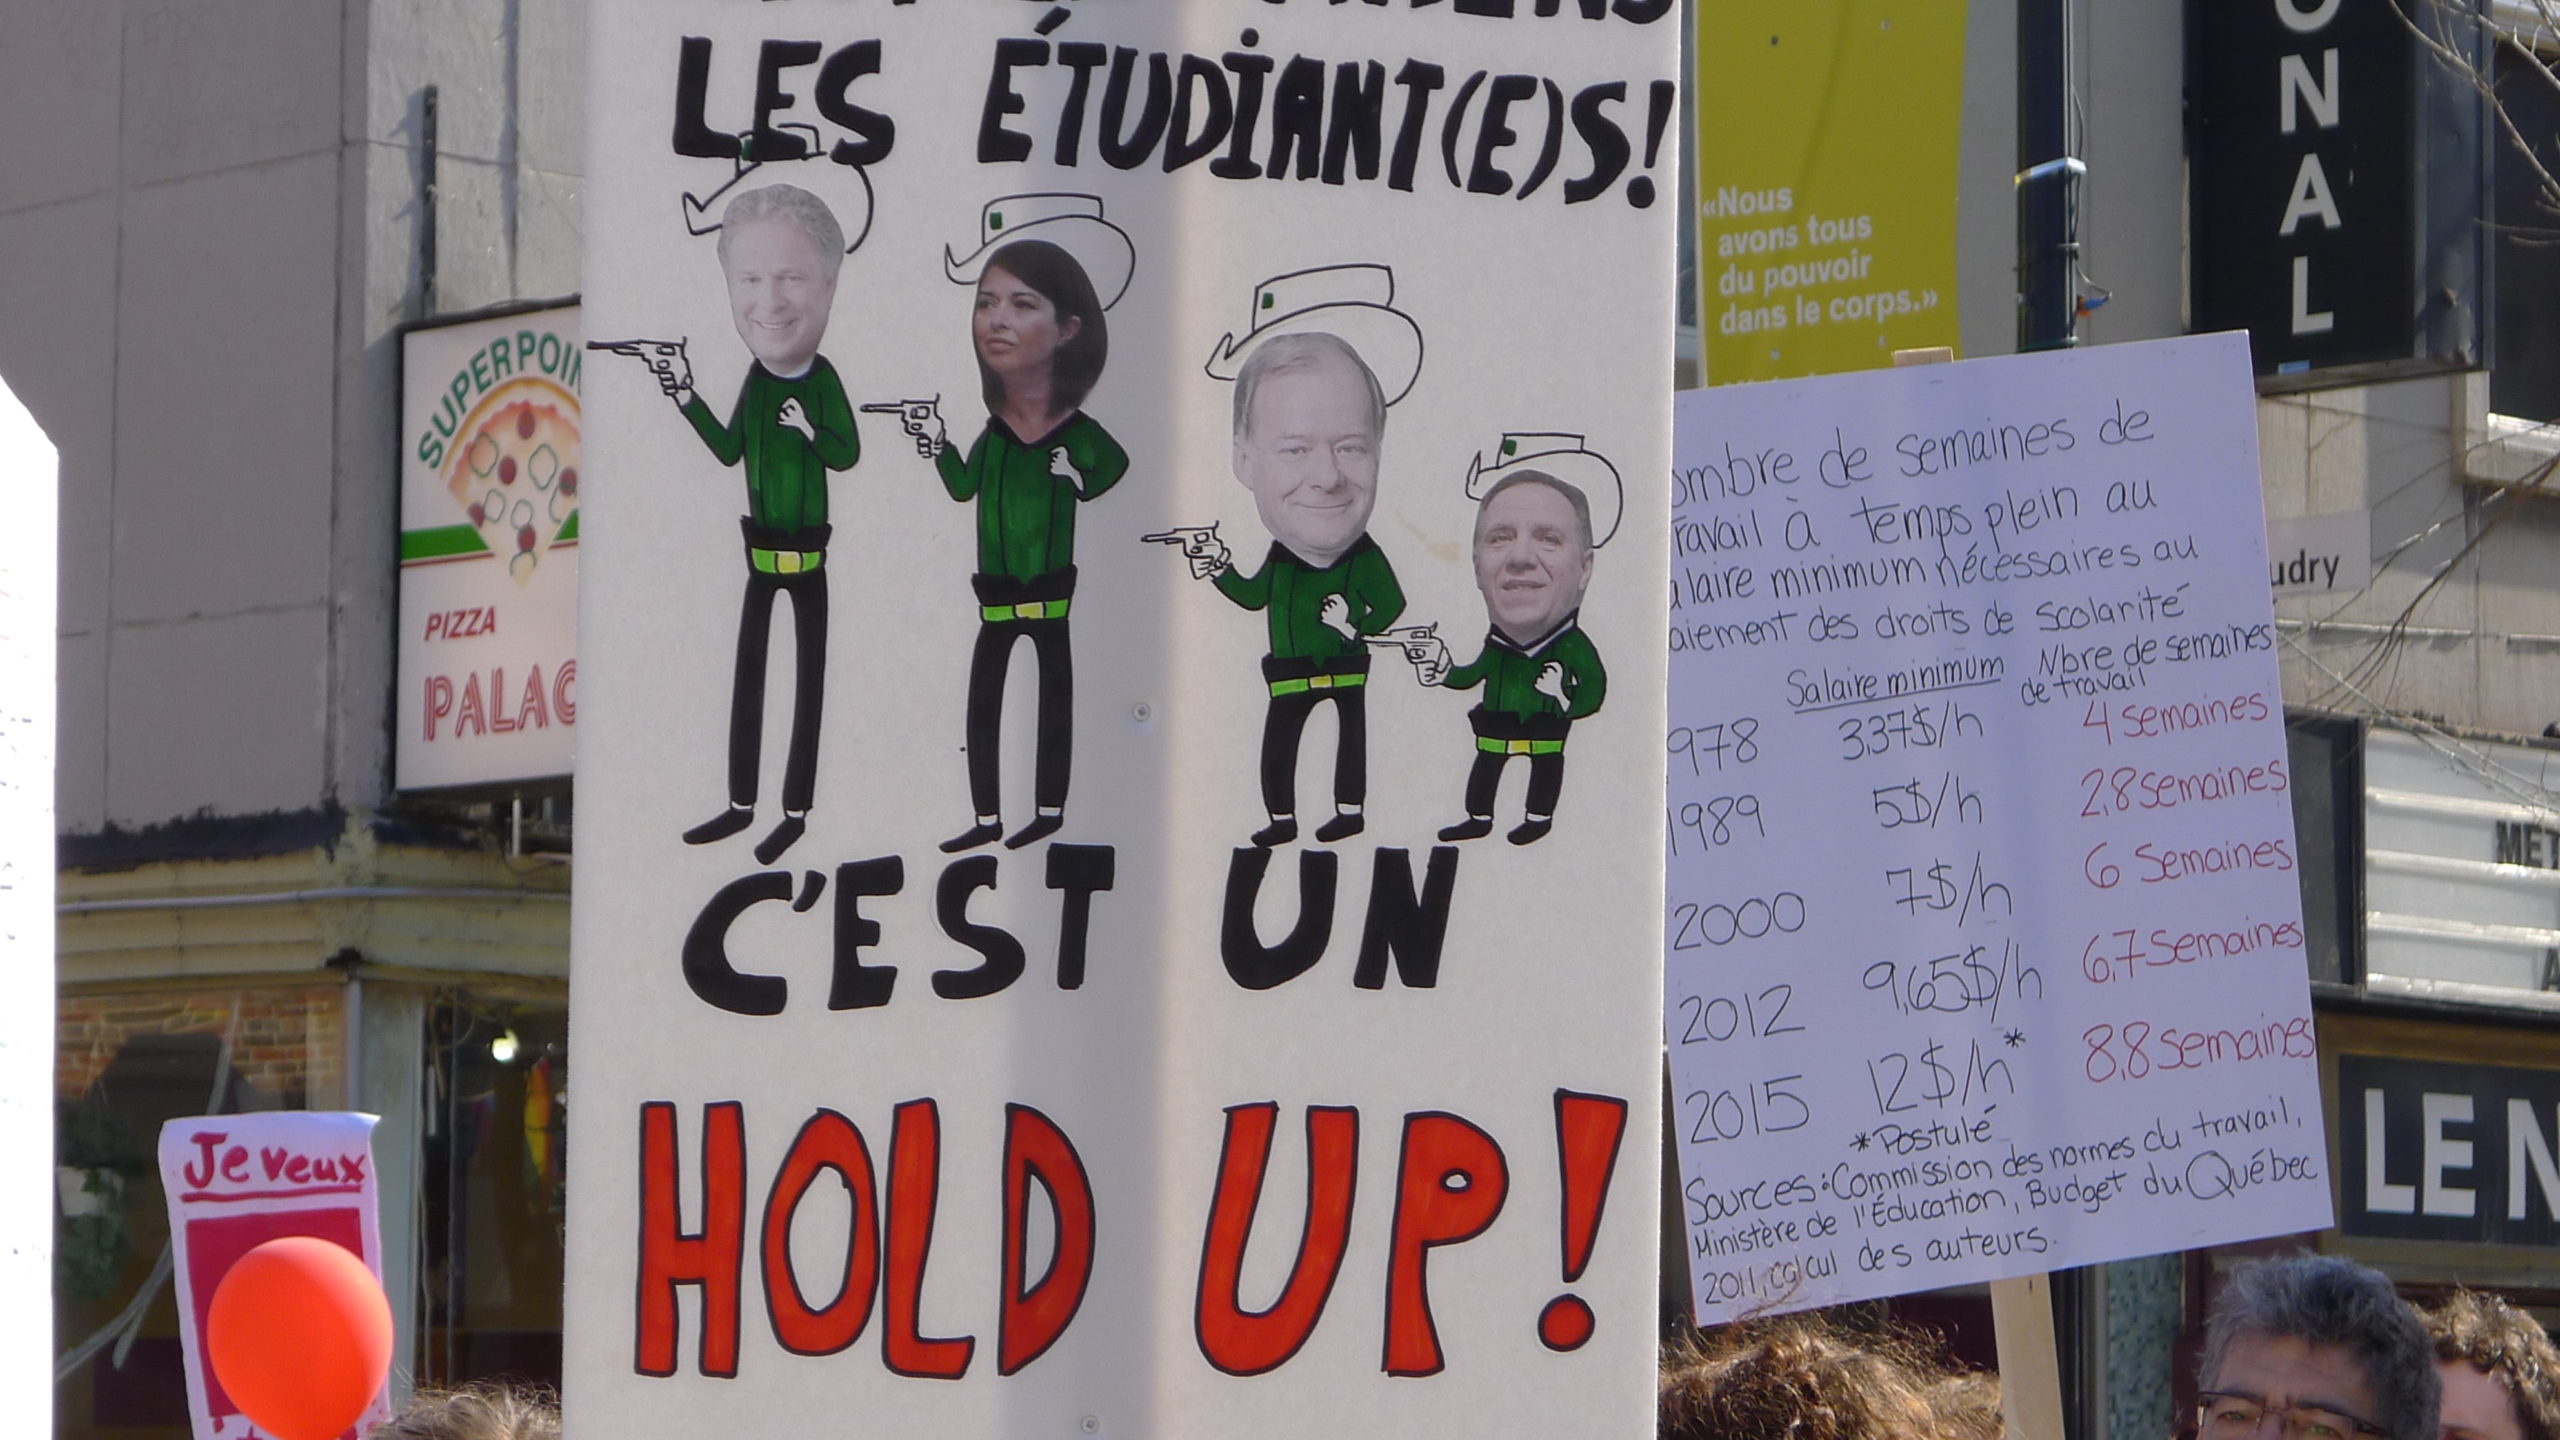 LES ÉTUDIANT(E)S!
C'EST UN
HOLD UP!
SUPER POIN
PIZZA
PALAC
Je veux
«Nous
avons tous
du pouvoir
dans le corps.»
ONAL
ombre de semaines de
ravail à temps plein au
alaire minimum nécessaires au
aiement des droits de scolarité
Salaire minimum Nbre de semaines
de travail
978 3,37$/h 4 semaines
1989 5$/h 2,8 semaines
2000 7$/h 6 Semaines
2012 9,65$/h 6,7 Semaines
2015 12$/h* 8,8 semaines
*Postulé
Sources: Commission des normes du travail,
Ministère de l'Éducation, Budget du Québec
2011, calcul des auteurs.
udry
MET
A
LE N